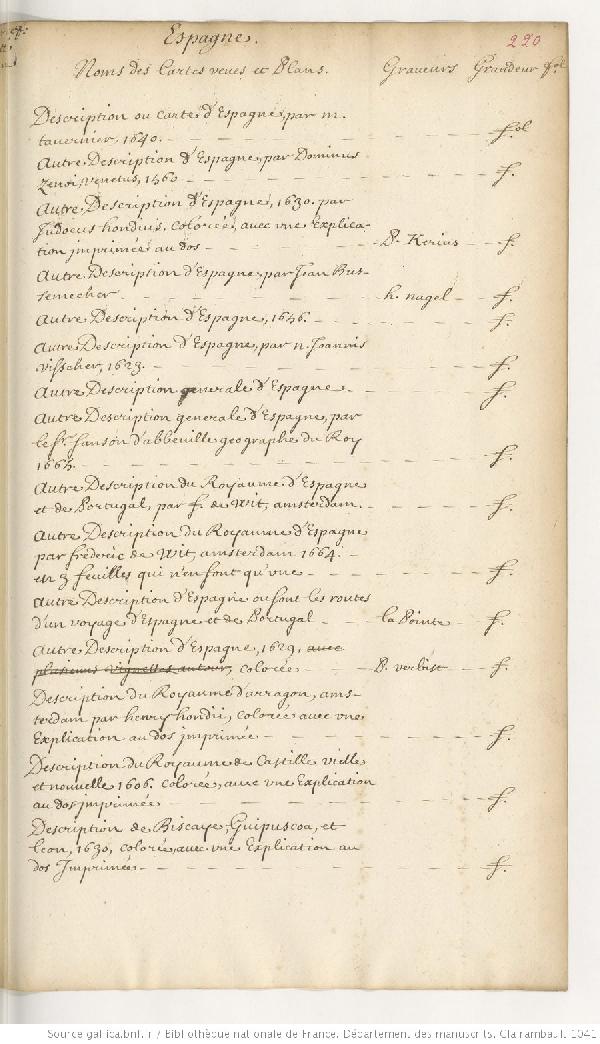 Espagne.
220
Noms des Cartes veues et Plans. Graveurs Grandeur fol
Description ou carte d'Espagne, par m.
tavernier, 1640. fol
Autre Description d'Espagne, par Dominus
Zenoi, venetus, 1560 f.
Autre Description d'Espagne, 1630. par
Judocus hondius, colorée, avec vne Explica-
tion imprimée au dos P. Kerius f.
Autre Description d'Espagne, par Jean Bus-
semecher h. nagel f.
Autre Description d'Espagne, 1646. f.
Autre Description d'Espagne, par n. Joannis
visscher, 1623. f.
Autre Description generale d'Espagne f.
Autre Description generale d'Espagne, par
le Sr. Sanson d'abbeville geographe du Roy
1665. f.
Autre Description du Royaume d'Espagne
et de Portugal, par f. de Wit, amsterdam. f.
Autre Description du Royaume d'Espagne
par frederic de Wit, amsterdam 1664.
en 3 feuilles qui n'en font qu'vne f.
Autre Description d'Espagne ou sont les routes
d'un voyage d'Espagne et de Portugal la Pointe f.
Autre Description d'Espagne, 1629, avec
plusieurs vignettes autour, colorée P. verbist f.
Description du Royaume d'arragon, ams-
terdam par henry hondii, colorée avec vne
Explication au dos jmprimée f.
Description du Royaume de Castille vielle
et nouvelle 1606. colorée, avec vne Explication
au dos jmprimée f.
Description de Biscaye, Guipuscoa, et
Leon, 1630, colorée, avec vne Explication au
dos Jmprimée. f.
Source gallica.bnf.fr / Bibliothèque nationale de France. Département des manuscrits. Clairambault 1041